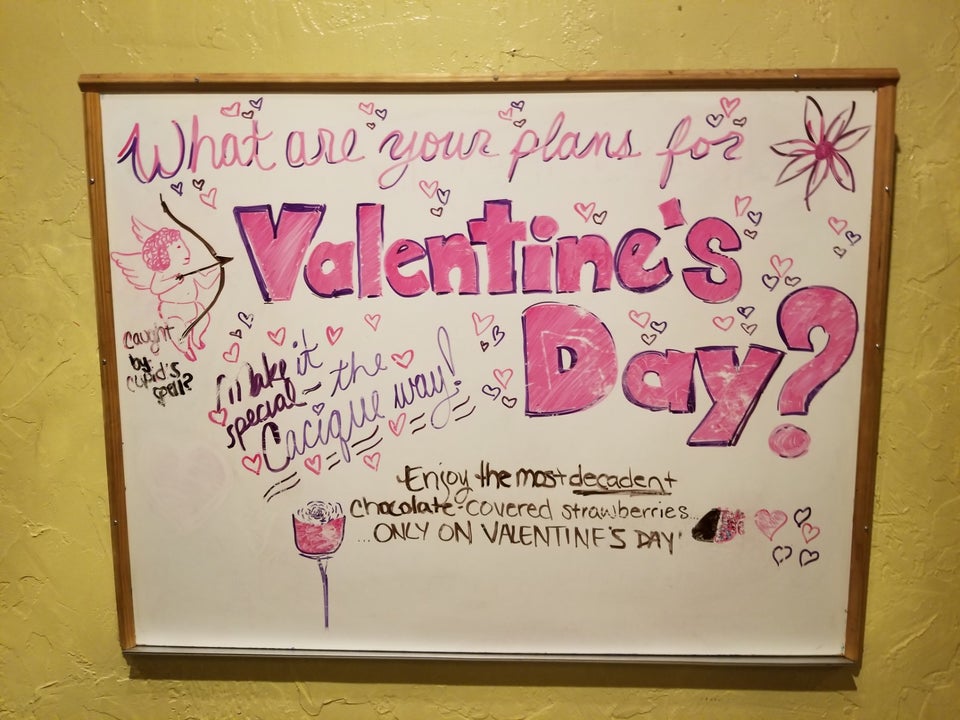 What are your plans for
Valentine's
Day?
caught
by
cupid's
spell?
Make it
special - the
Cacique way!
Enjoy the most decadent
chocolate-covered strawberries...
...ONLY ON VALENTINE'S DAY!